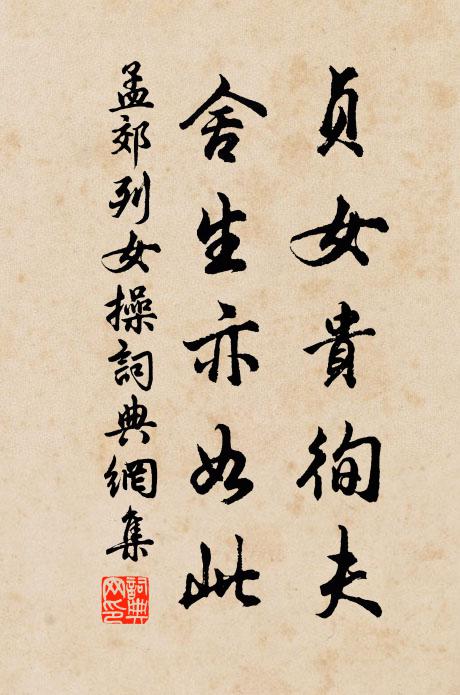 貞女貴徇夫
舍生亦如此
孟郊列女操詞典網集
詞典網印